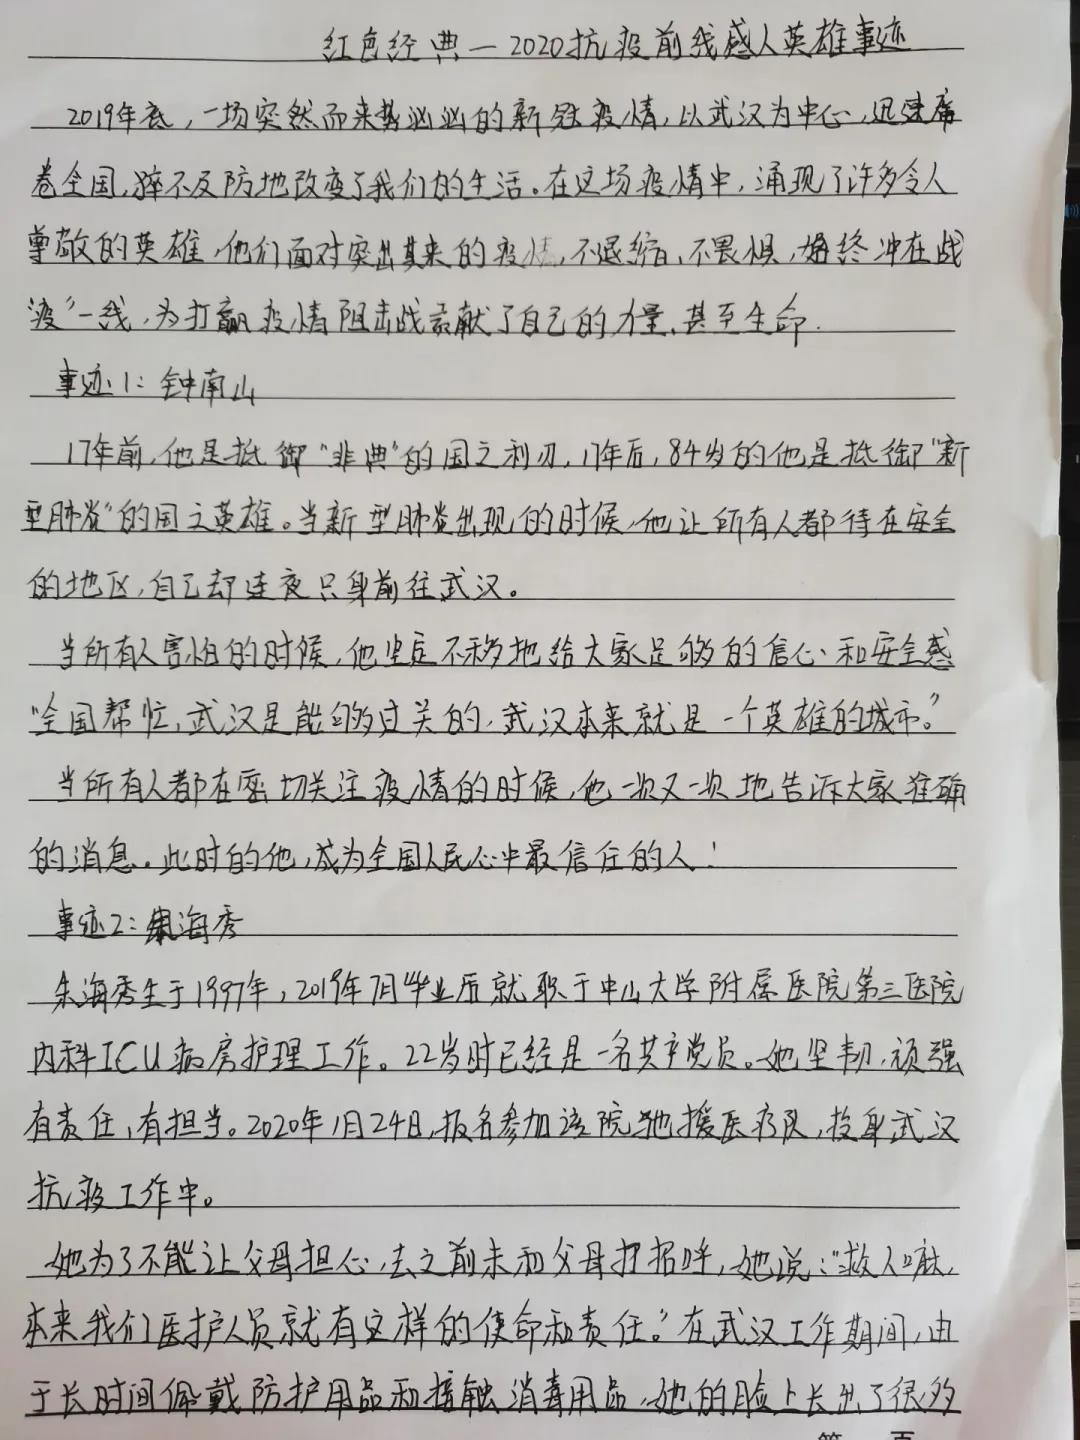 红色经典—2020抗疫前线感人英雄事迹
2019年底，一场突然而来势汹汹的新冠疫情，以武汉为中心，迅速席
卷全国，猝不及防地改变了我们的生活。在这场疫情中，涌现了许多令人
尊敬的英雄，他们面对突出其来的疫情，不退缩，不畏惧，始终冲在战
疫”一线，为打赢疫情阻击战贡献了自己的力量、甚至生命.
事迹1：钟南山
17年前，他是抵御“非典”的国之利刃，17年后，84岁的他是抵御“新
型肺炎”的国之英雄。当新型肺炎出现的时候，他让所有人都待在安全
的地区，自己却连夜只身前往武汉。
当所有人害怕的时候，他坚定不移地给大家足够的信心、和安全感
“全国帮忙，武汉是能够过关的，武汉本来就是一个英雄的城市。”
当所有人都在密切关注疫情的时候，他一次又一次地告诉大家准确
的消息。此时的他，成为全国人民心中最信任的人！
事迹2：朱海秀
朱海秀生于1997年，2019年7月毕业后就职于中山大学附属医院第三医院
内科ICU病房护理工作。22岁时已经是一名共产党员。她坚韧，顽强
有责任，有担当。2020年1月24日，报名参加该院驰援医疗队，投身武汉
抗疫工作中。
她为了不能让父母担心，去之前未和父母打招呼，她说：“救人嘛，
本来我们医护人员就有这样的使命和责任。”在武汉工作期间，由
于长时间佩戴防护用品和接触消毒用品，她的脸上长出了很多
第 页